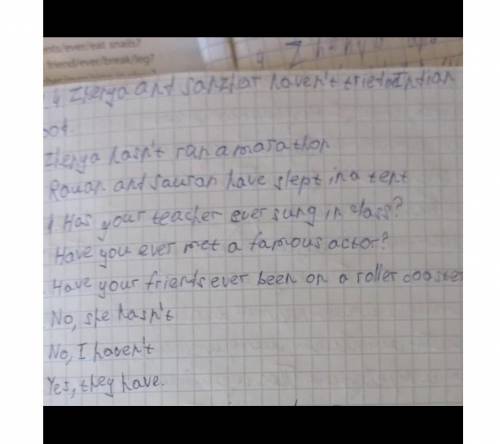 ents/ever/eat snails?
friend/ever/break/leg?
4 Zhenya and Sanzhar haven't tried Indian
Zhenya hasn't ran a marathon
Rauan and Sauran have slept in a tent
1 Has your teacher ever sung in class?
Have you ever met a famous actor?
Have your friends ever been on a roller coaster
No, she hasn't
No, I haven't
Yes, they have.